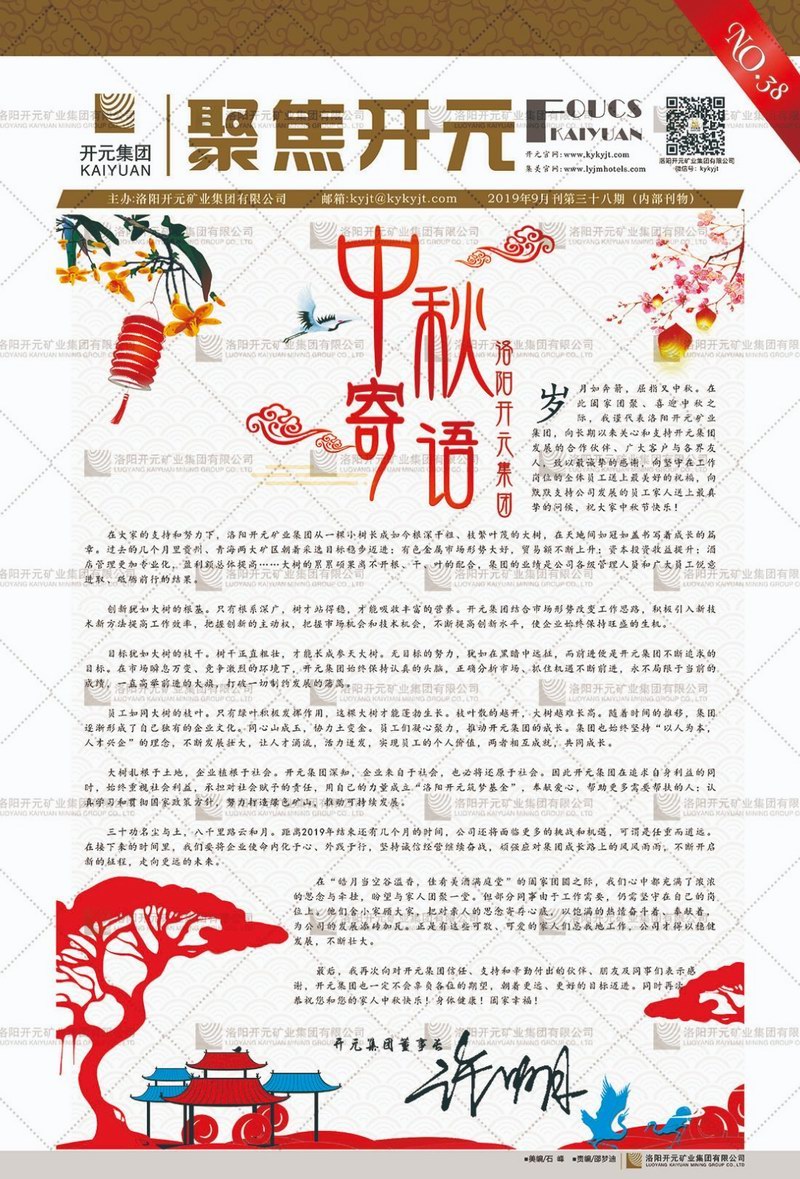 NO.38
开元集团
KAIYUAN
聚焦开元
FOUCS
KAIYUAN
开元官网:www.kykyjt.com
集美官网:www.lyjmhotels.com
洛阳开元矿业集团有限公司
微信号: kykyjt
主办:洛阳开元矿业集团有限公司 邮箱:kyjt@kykyjt.com 2019年9月刊第三十八期（内部刊物）
中秋寄语
洛阳开元集团
岁月如奔箭，屈指又中秋。在
此阖家团聚、喜迎中秋之
际，我谨代表洛阳开元矿业
集团，向长期以来关心和支持开元集团
发展的合作伙伴、广大客户与各界友
人，致以最诚挚的感谢，向坚守在工作
岗位的全体员工送上最美好的祝福，向
默默支持公司发展的员工家人送上最真
挚的问候，祝大家中秋节快乐！
在大家的支持和努力下，洛阳开元矿业集团从一棵小树长成如今根深干粗、枝繁叶茂的大树，在天地间如冠如盖书写着成长的篇
章。过去的几个月里贵州、青海两大矿区朝着采选目标稳步迈进；有色金属市场形势大好，贸易额不断上升；资本投资收益提升；酒
店管理更加专业化，盈利额总体提高……大树的累累硕果离不开根、干、叶的配合，集团的业绩是公司各级管理人员和广大员工锐意
进取、砥砺前行的结果。
创新犹如大树的根基。只有根系深广，树才站得稳，才能吸收丰富的营养。开元集团结合市场形势改变工作思路，积极引入新技
术新方法提高工作效率，把握创新的主动权，把握市场机会和技术机会，不断提高创新水平，使企业始终保持旺盛的生机。
目标犹如大树的枝干。树干正直粗壮，才能长成参天大树。无目标的努力，犹如在黑暗中远征，而前进便是开元集团不断追求的
目标。在市场瞬息万变、竞争激烈的环境下，开元集团始终保持认真的头脑，正确分析市场、抓住机遇不断前进，永不局限于当前的
成绩，一直高举前进的大旗，打破一切制约发展的藩篱。
员工如同大树的枝叶。只有绿叶积极发挥作用，这棵大树才能蓬勃生长。枝叶散的越开，大树越难长高。随着时间的推移，集团
逐渐形成了自己独有的企业文化。同心山成玉，协力土变金。员工们凝心聚力，推动开元集团的成长。集团也始终坚持“以人为本，
人才兴企”的理念，不断发展壮大，让人才涌流，活力迸发，实现员工的个人价值，两者相互成就，共同成长。
大树扎根于土地，企业植根于社会。开元集团深知，企业来自于社会，也必将还原于社会。因此开元集团在追求自身利益的同
时，始终重视社会利益，承担对社会赋予的责任，用自己的力量成立“洛阳开元筑梦基金”，奉献爱心，帮助更多需要帮扶的人；认
真学习和贯彻国家政策方针，努力打造绿色矿山，推动可持续发展。
三十功名尘与土，八千里路云和月。距离2019年结束还有几个月的时间，公司还将面临更多的挑战和机遇，可谓是任重而道远。
在接下来的时间里，我们要将企业使命内化于心、外践于行，坚持诚信经营继续奋战，顽强应对集团成长路上的风风雨雨，不断开启
新的征程，走向更远的未来。
在“皓月当空谷溢香，佳肴美酒满庭堂”的阖家团圆之际，我们心中都充满了浓浓
的思念与牵挂，盼望与家人团聚一堂。但部分同事由于工作需要，仍需坚守在自己的岗
位上。他们舍小家顾大家，把对亲人的思念寄再心底，以饱满的热情奋斗着、奉献着，
为公司的发展添砖加瓦。正是有这些可敬、可爱的家人们忠诚地工作，公司才得以稳健
发展，不断壮大。
最后，我再次向对开元集团信任、支持和辛勤付出的伙伴、朋友及同事们表示感
谢，开元集团也一定不会辜负各位的期望，朝着更远、更好的目标迈进。同时再次
恭祝您和您的家人中秋快乐！身体健康！阖家幸福！
开元集团董事长
■美编/石 峰 ■责编/邵梦迪
洛阳开元矿业集团有限公司
LUOYANG KAIYUAN MINING GROUP CO., LTD